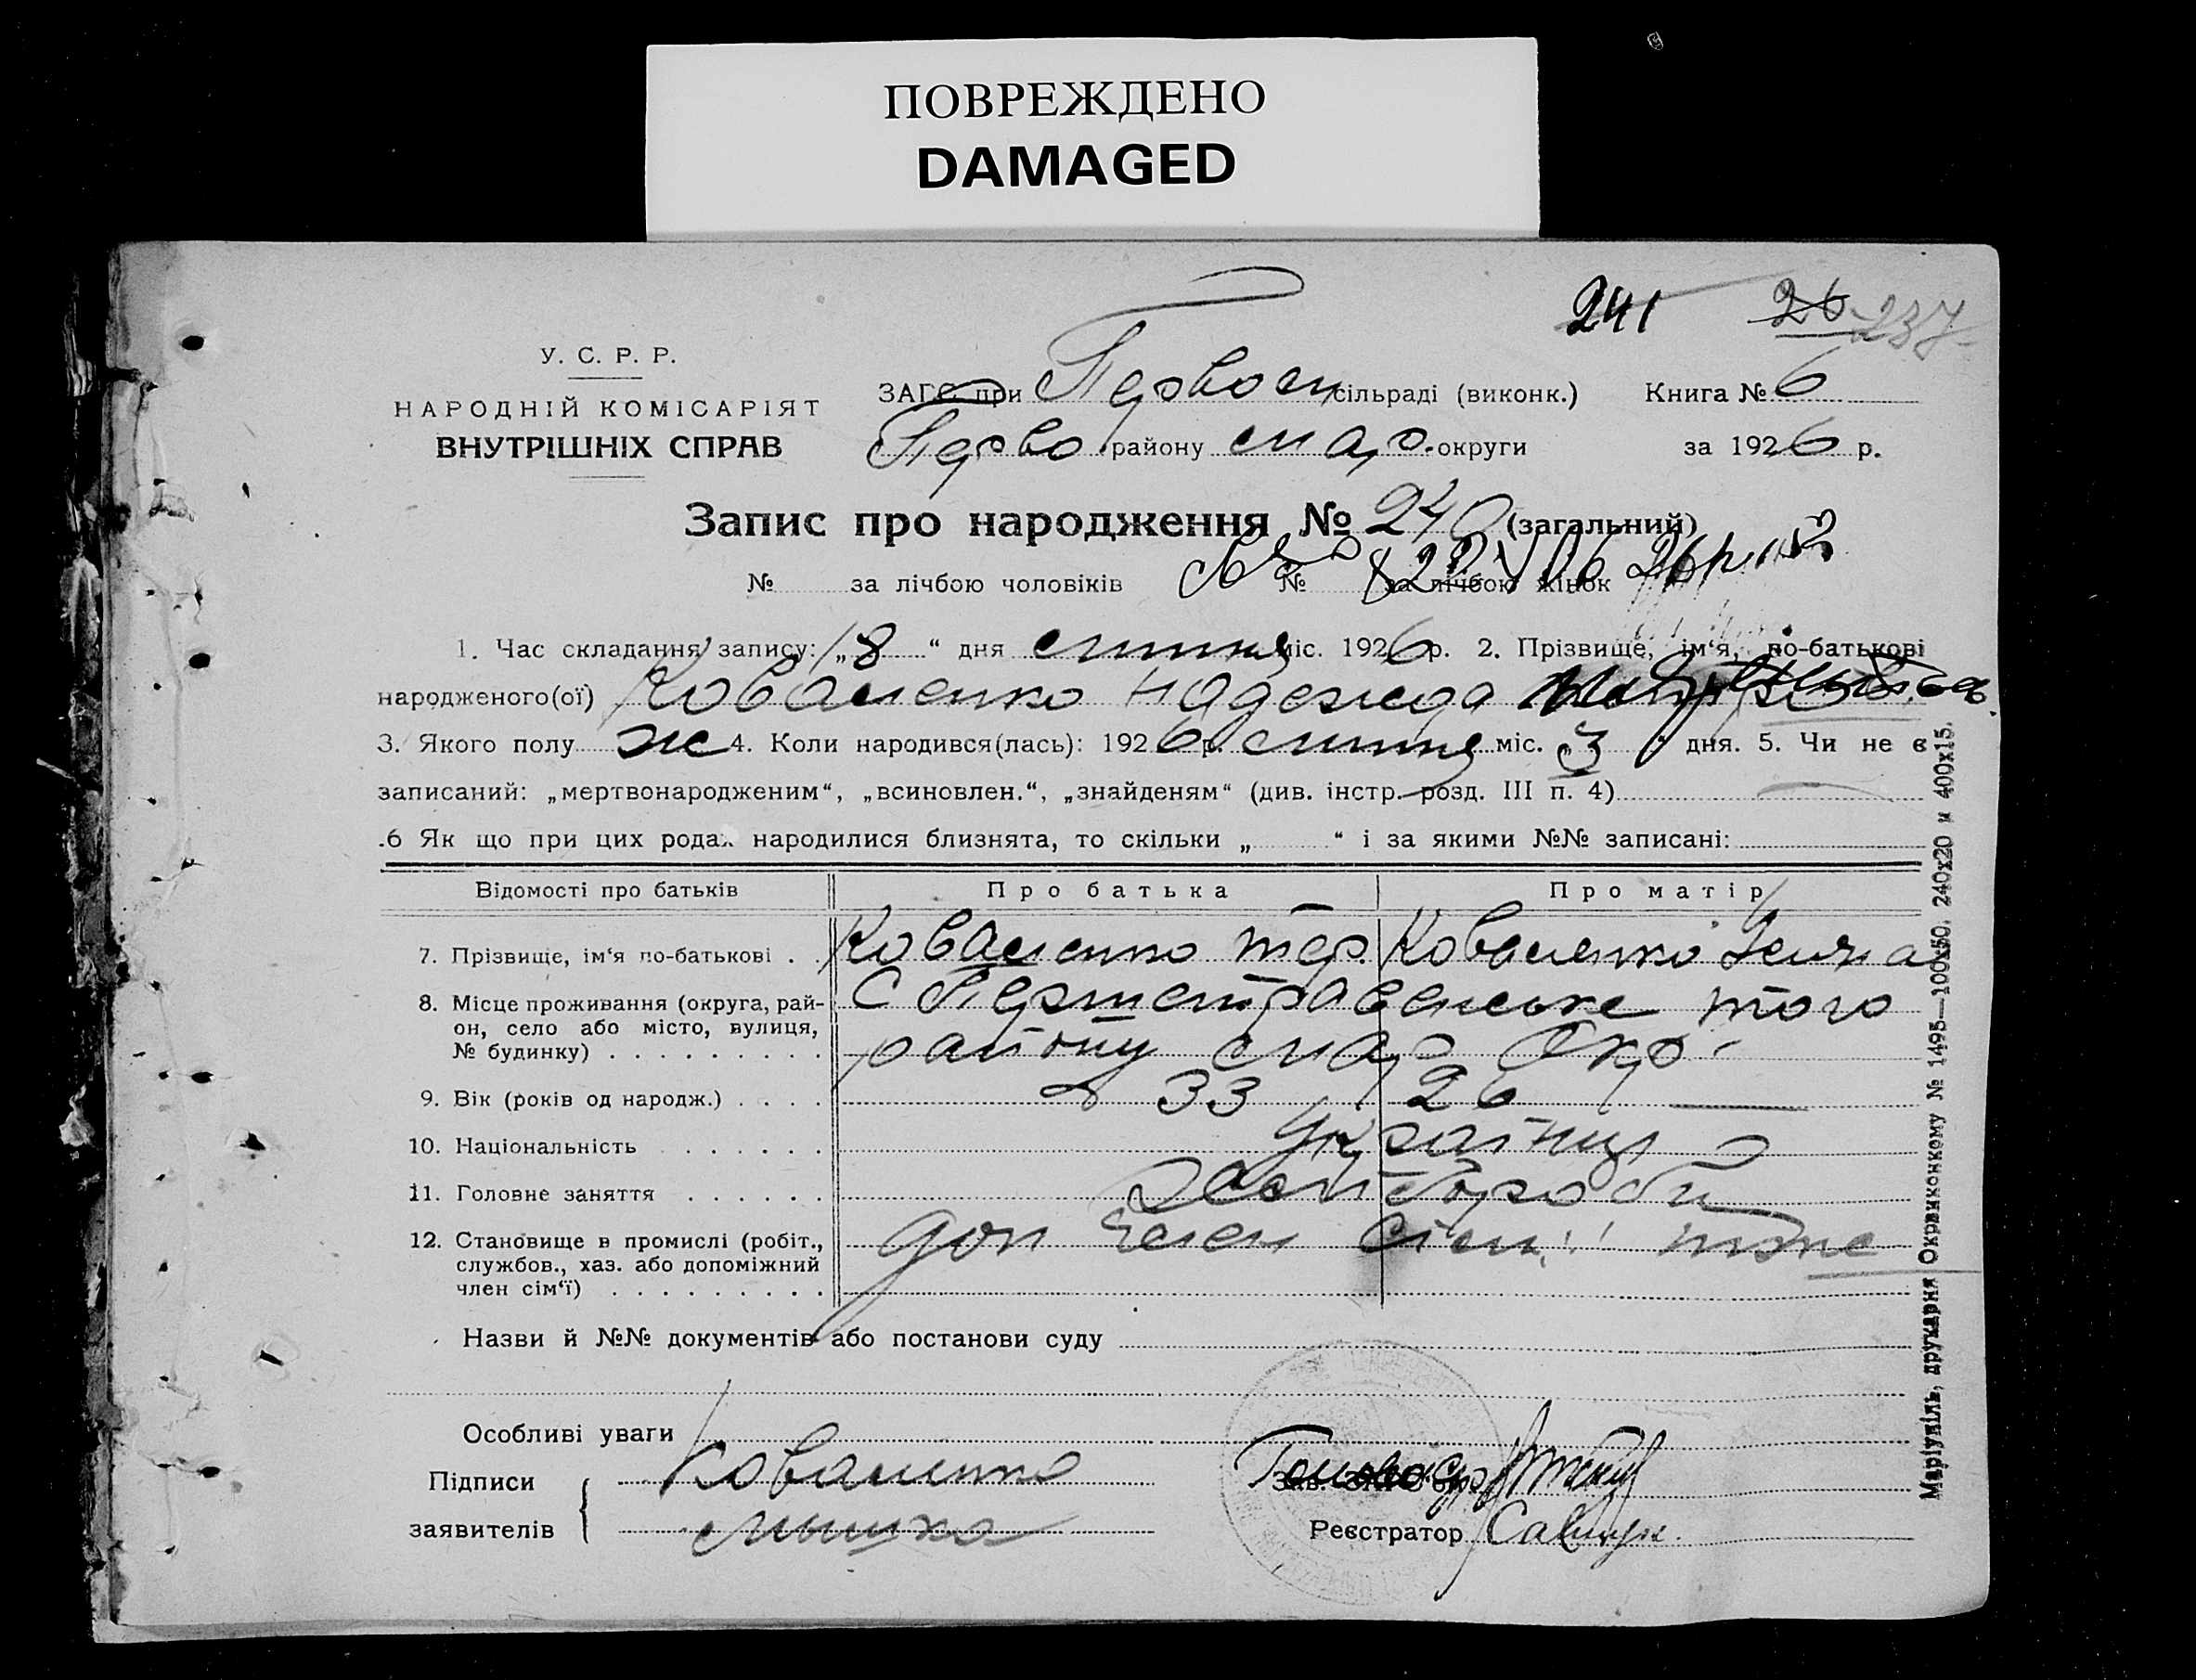 ПОВРЕЖДЕНО
DAMAGED
241 26 237
У. С. Р. Р.
НАРОДНІЙ КОМІСАРІЯТ
ВНУТРІШНІХ СПРАВ
ЗАГС при Первом сільраді (виконк.) Книга № 6
Перво району мар. округи за 1926 р.
Запис про народження № 240 (загальний)
№ за лічбою чоловіків № за лічбою жінок
1. Час складання запису: „18“ дня липня міс. 1926 р. 2. Прізвище, ім‘я, по-батькові
народженого(ої) Коваленко Надежда
3. Якого полу ж 4. Коли народився(лась): 1926 р. липня міс. „3“ дня. 5. Чи не є
записаний: „мертвонародженим“, „всиновлен.“, „знайденям“ (див. інстр. розд. III п. 4)
.6 Як що при цих родах народилися близнята, то скільки „ “ і за якими №№ записані:
Відомості про батьків Про батька Про матір
7. Прізвище, ім‘я по-батькові . . Коваленко Коваленко
8. Місце проживання (округа, рай-
он, село або місто, вулиця,
№ будинку) . . . . . . . . . того
району мар Окр
9. Вік (років од народж.) . . . . 33 26
10. Національність . . . . . . Українці
11. Головне заняття . . . . . . хліборобы
12. Становище в промислі (робіт.,
службов., хаз. або допоміжний
член сім‘ї) . . . . . . . . . доп член сіем. тоже
Назви й №№ документів або постанови суду
Особливі уваги
Підписи
заявителів
Коваленко
Мышко
Зав. ЗАГС‘ом
Реєстратор
Маріупіль, друкарня Окрвиконкому № 1495—100х50. 240х20 и 400х15.